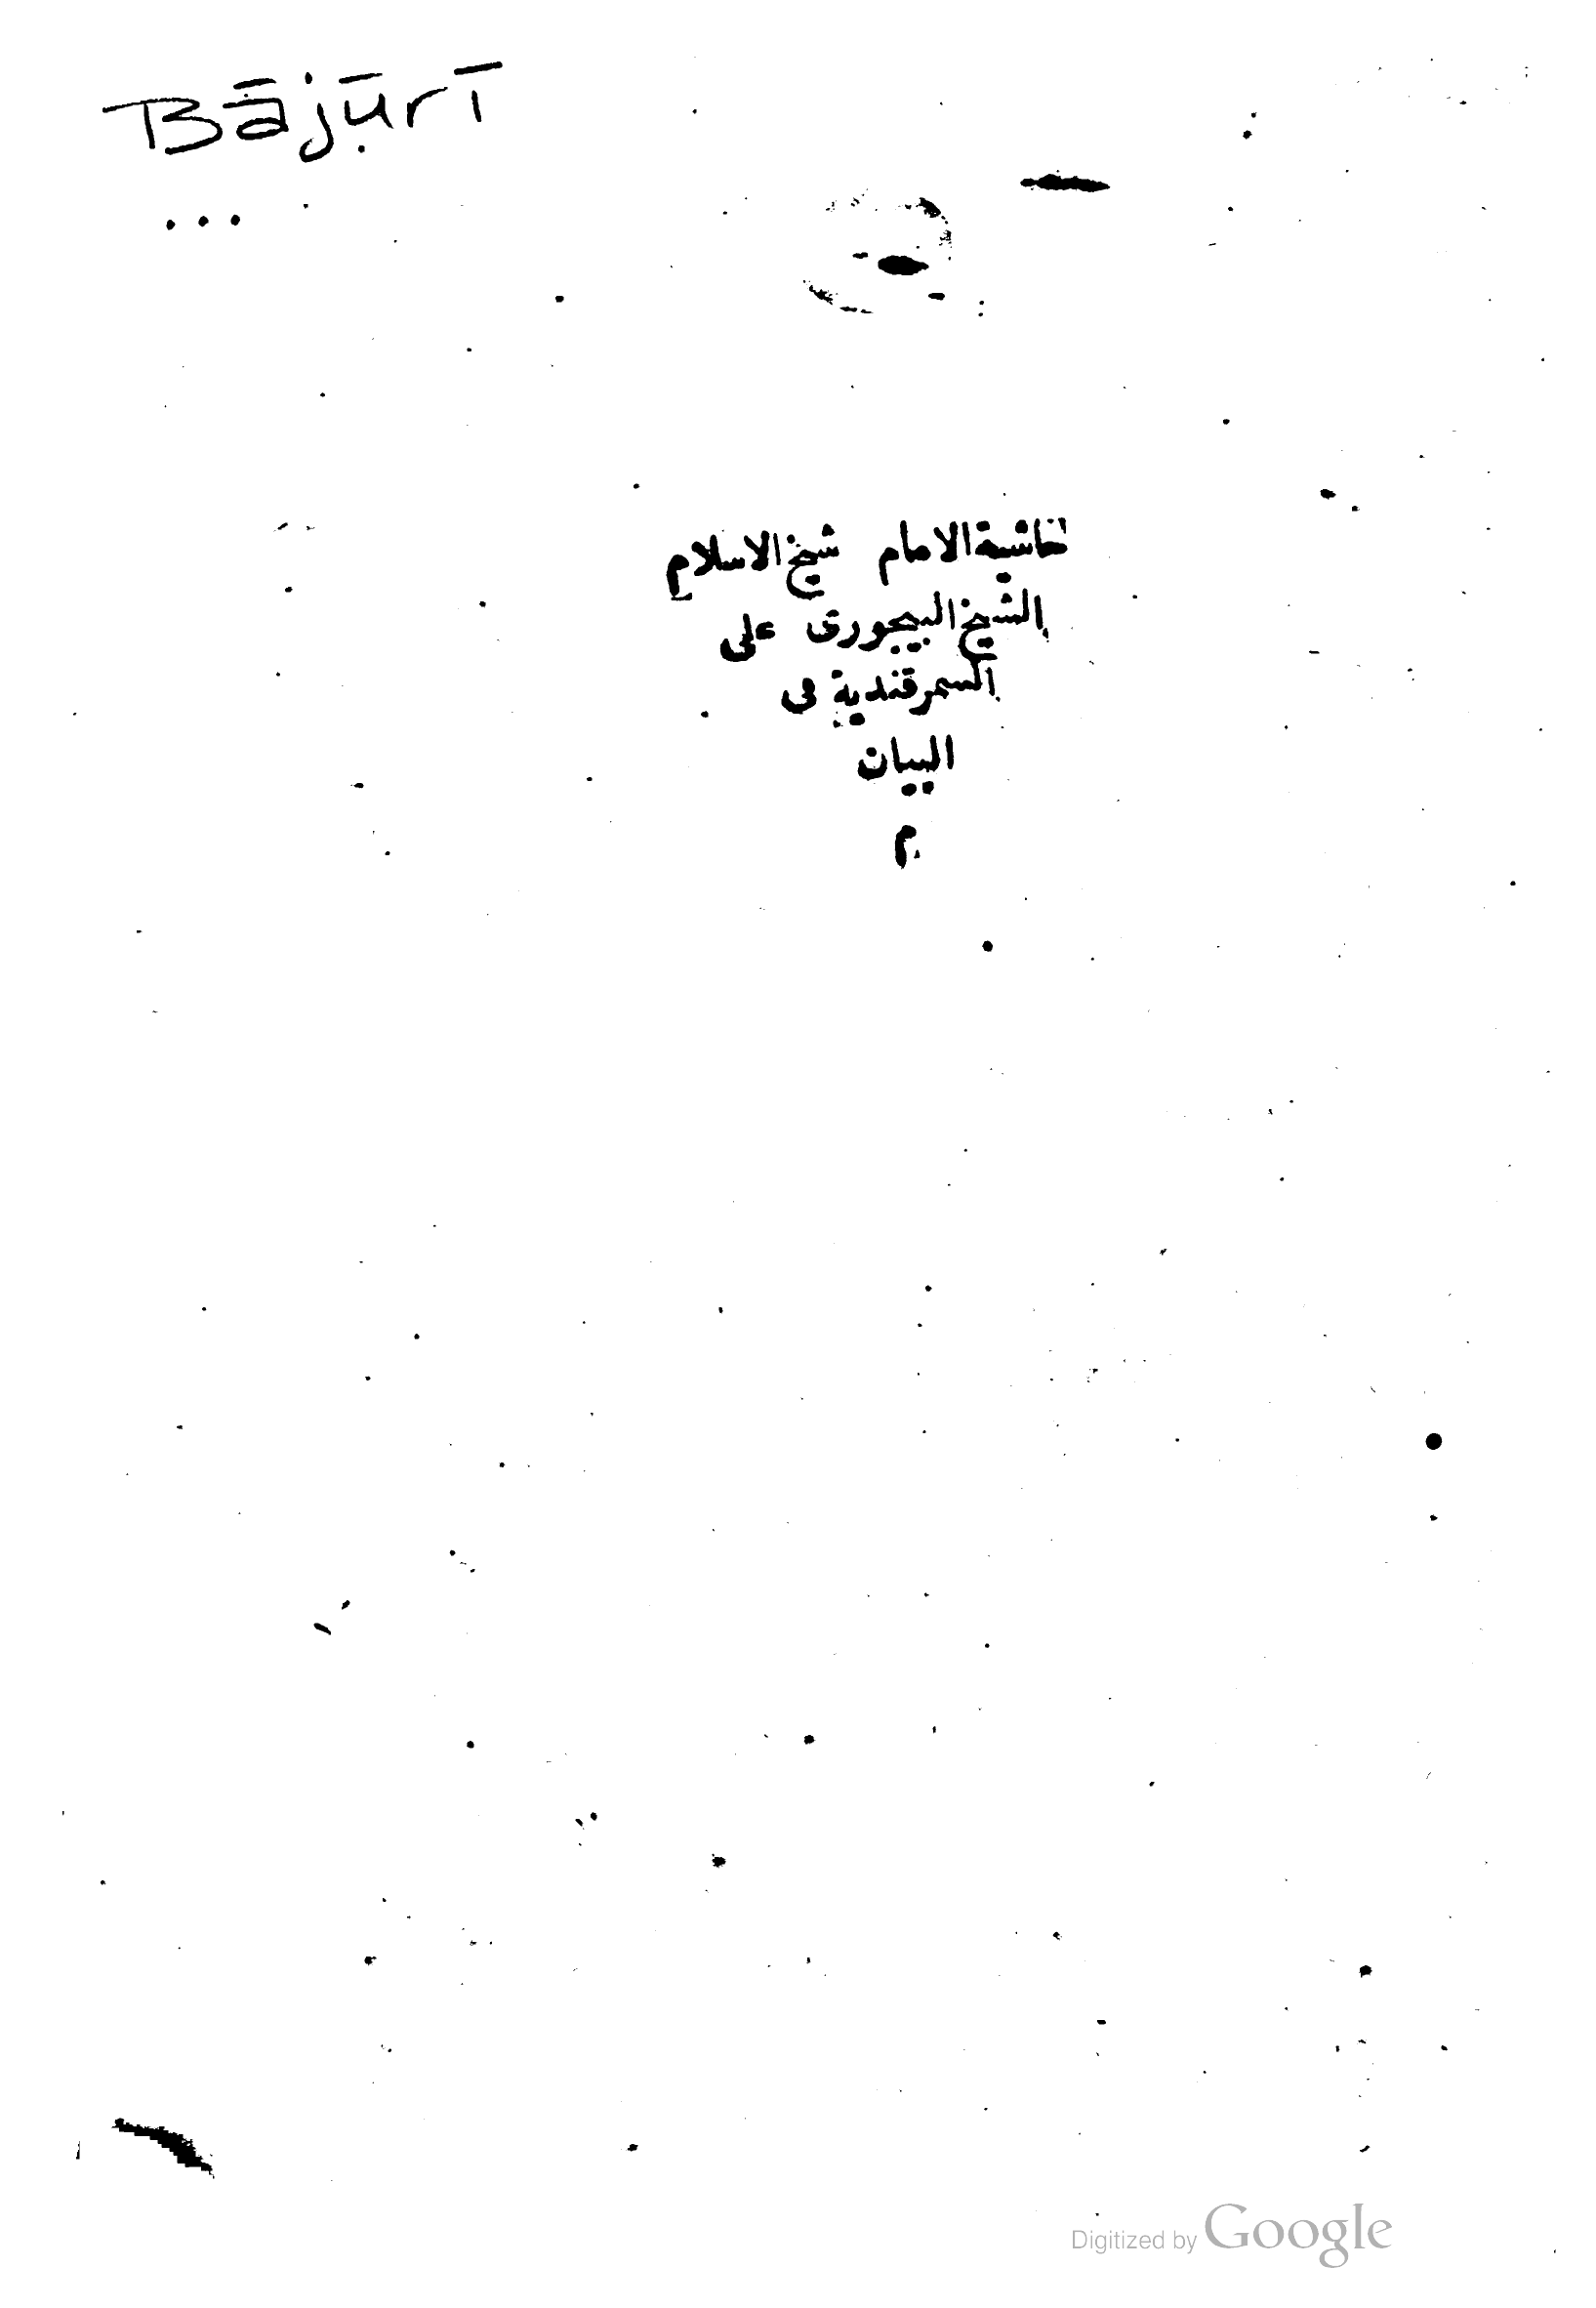 Bājūrī
...
حاشية الامام شيخ الاسلام
الشيخ البيجورى على
السمرقندية فى
البيان
م
Digitized by Google